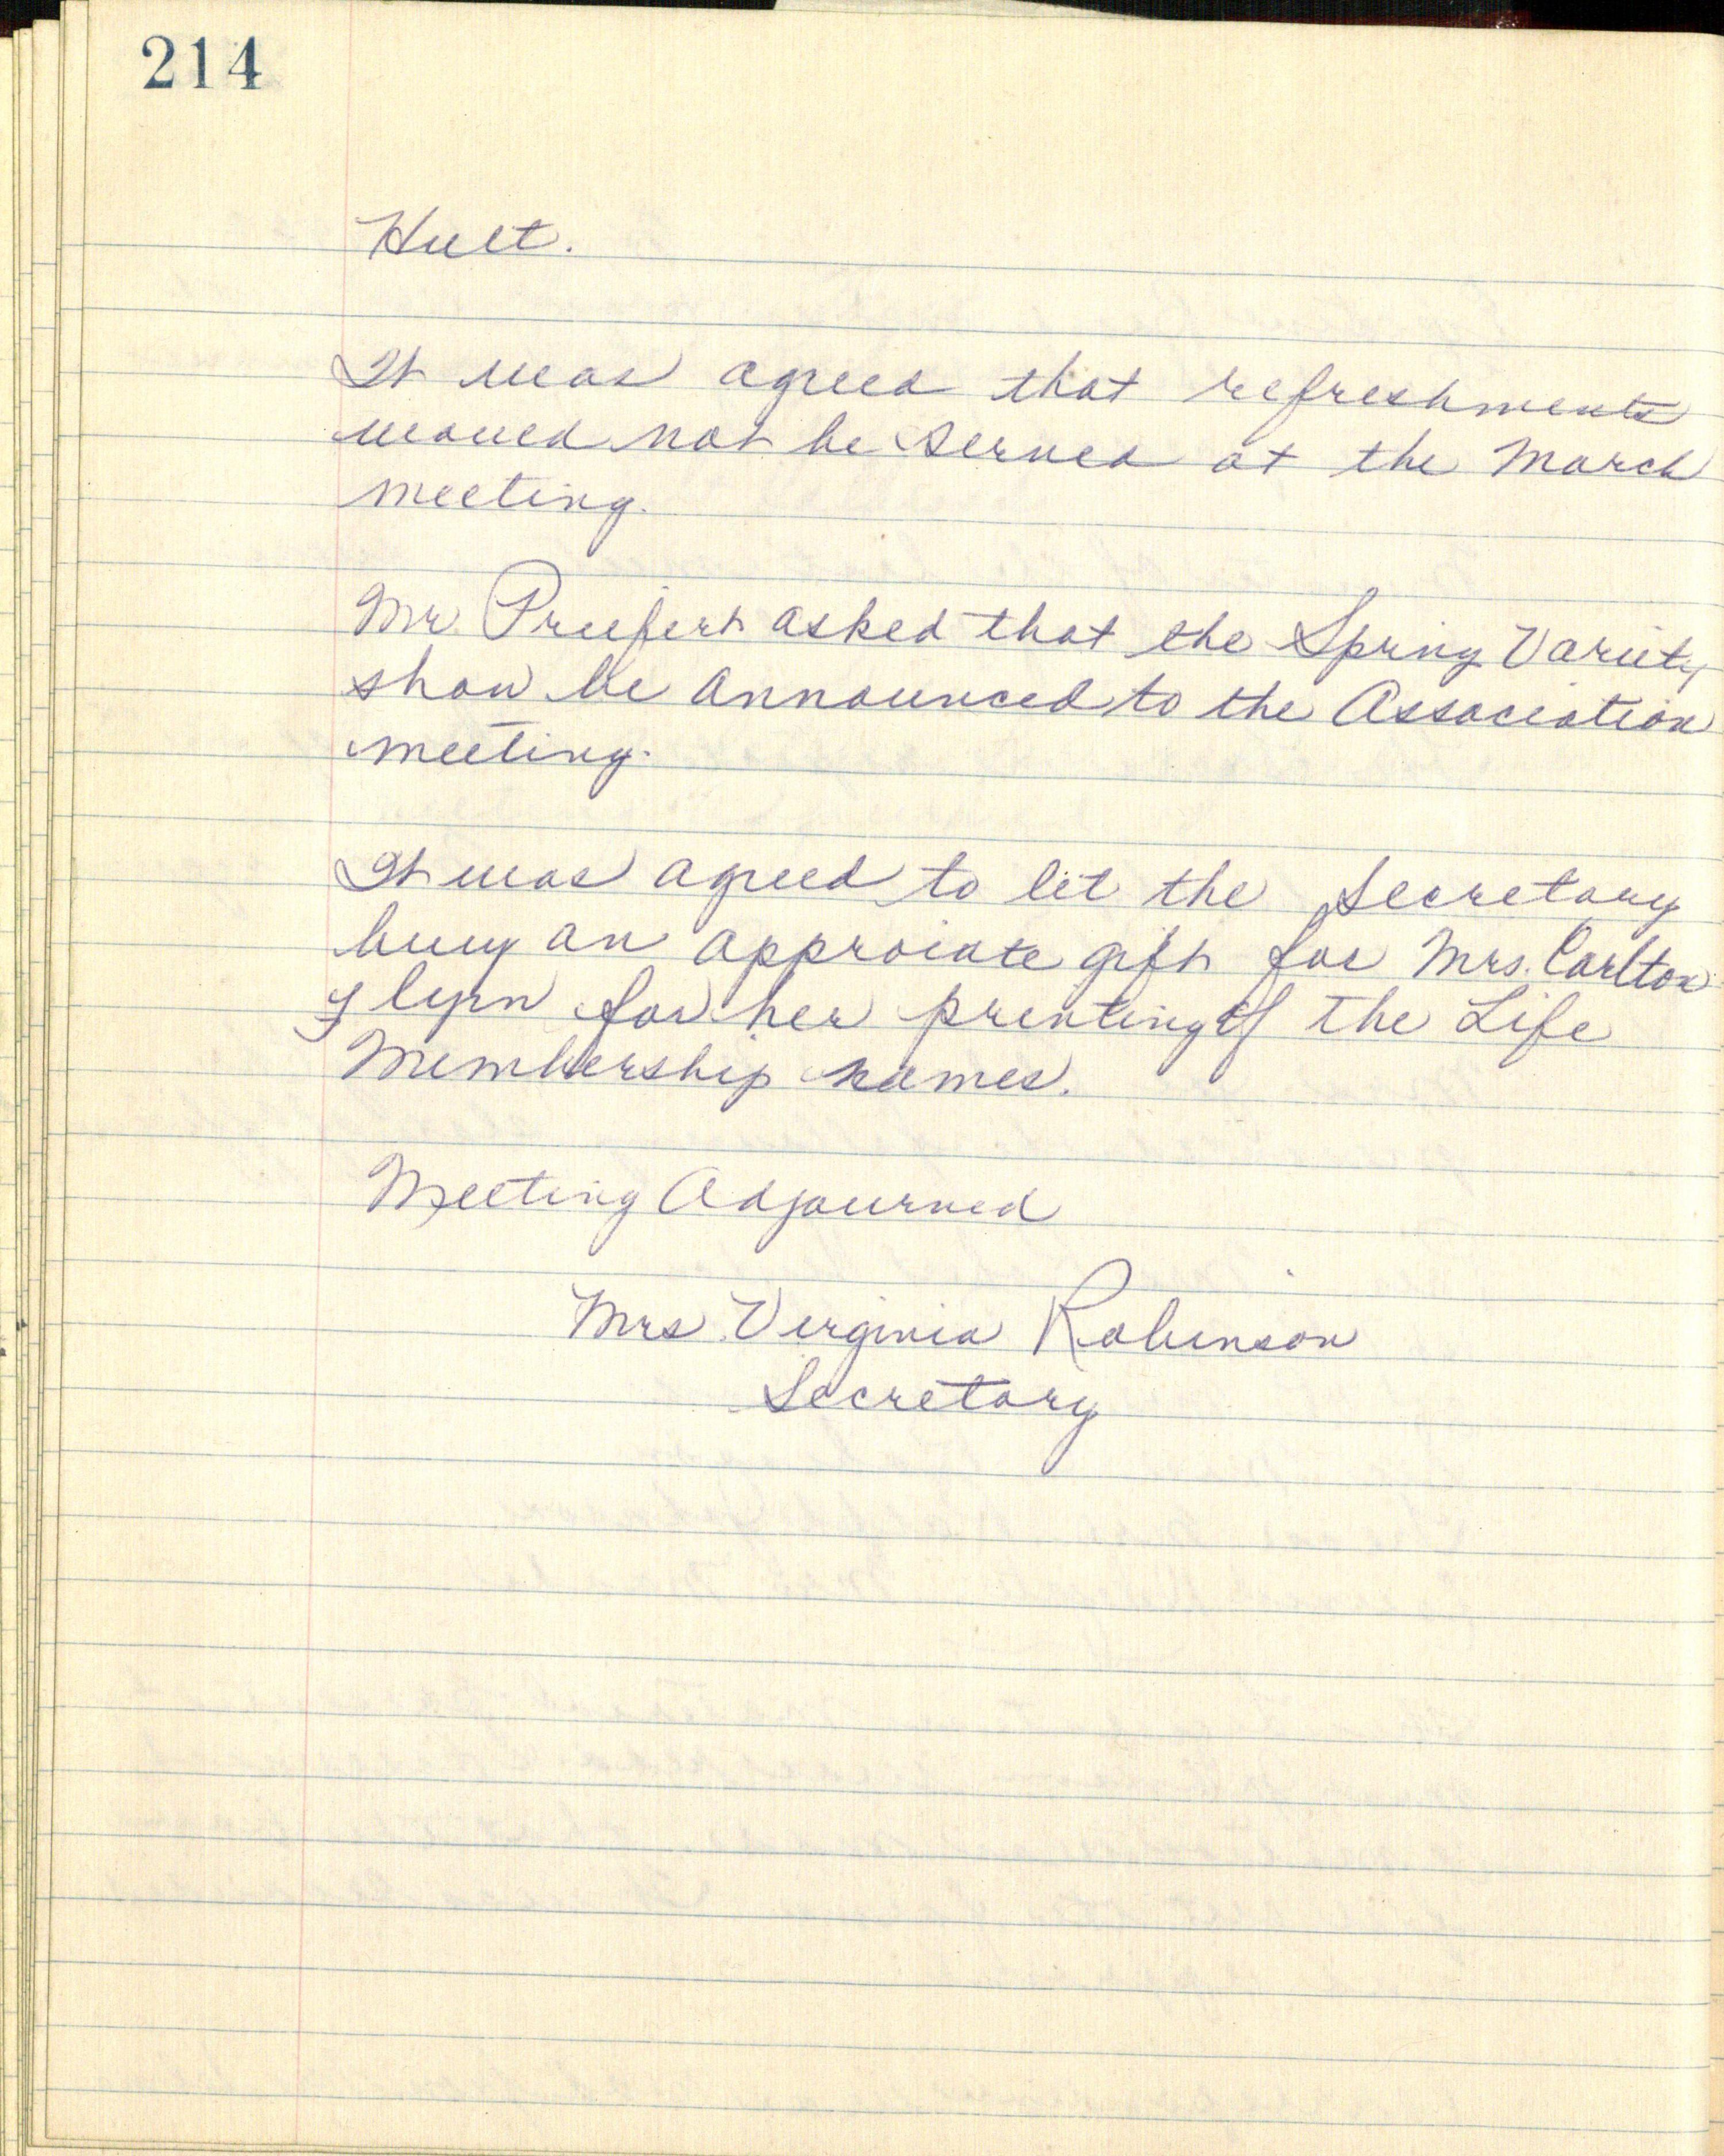 214
Hult.
It was agreed that refreshments
would not be served at the March
meeting.
Mr. Pruefert asked that the Spring Variety
show be announced to the Association
meeting.
It was agreed to let the Secretary
buy an approiate gift for Mrs. Carlton
Glynn for her printing of the Life
Membership names.
Meeting Adjourned
Mrs. Virginia Robinson
Secretary